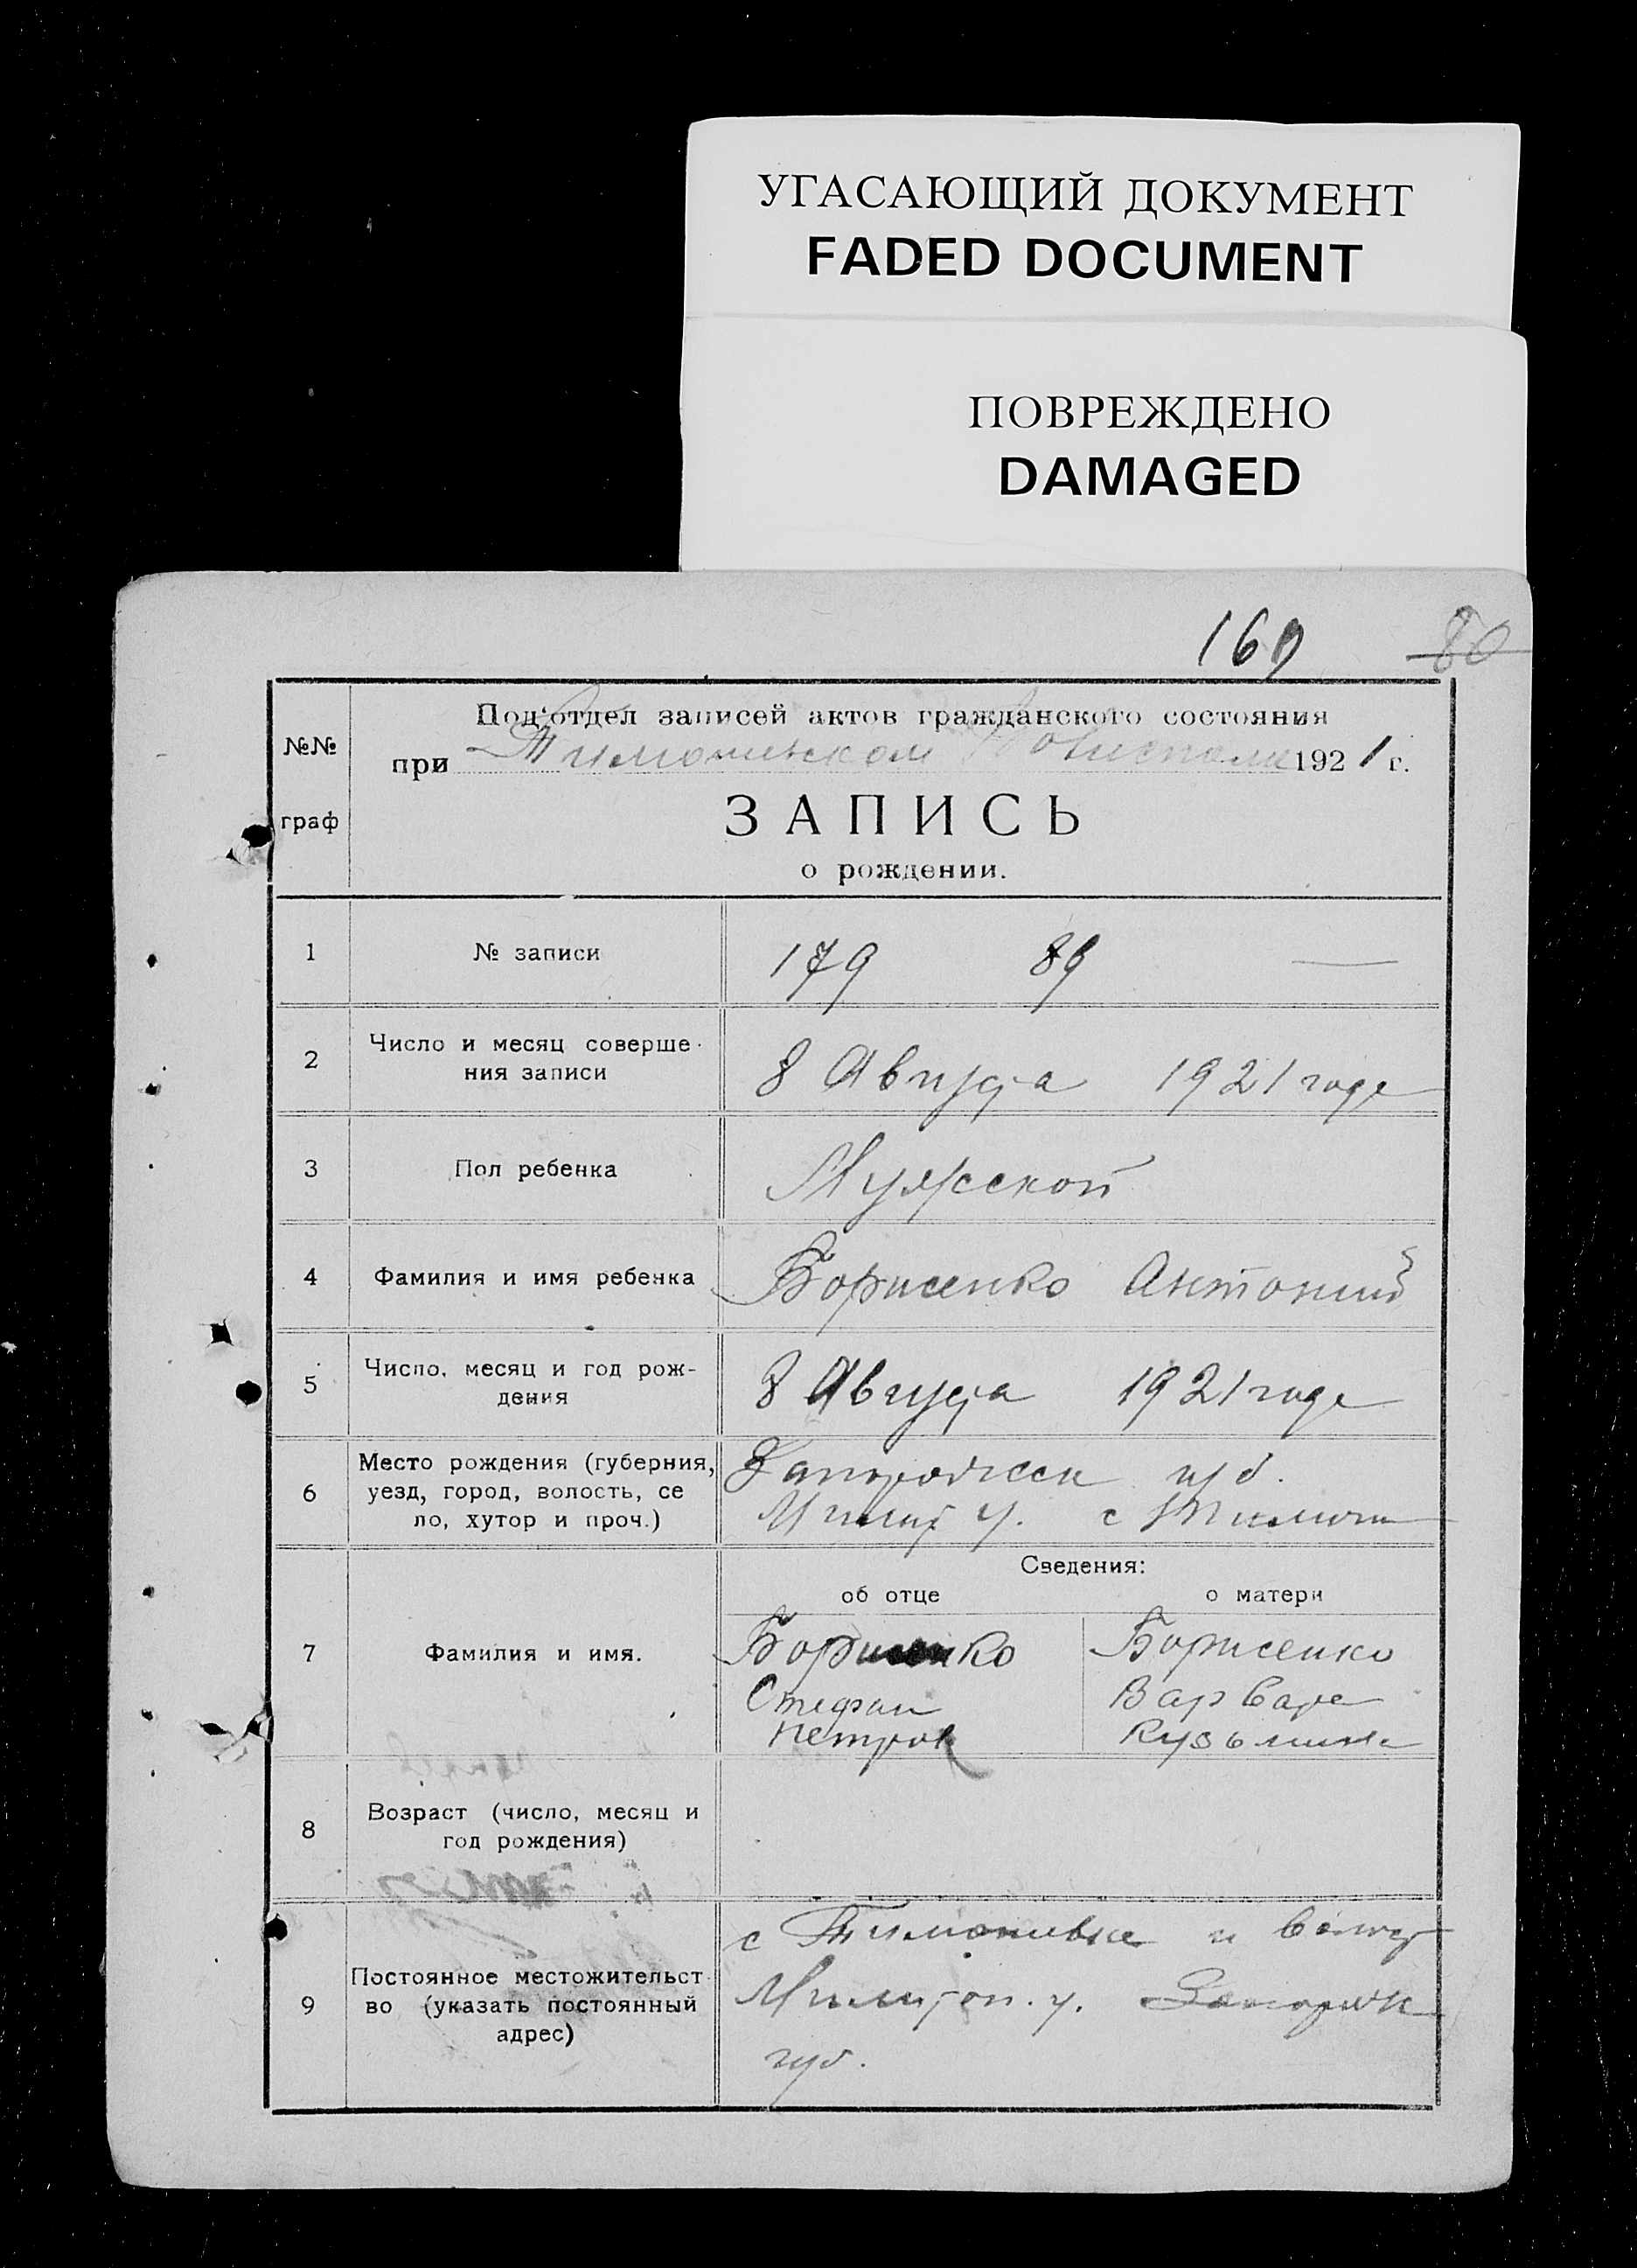 УГАСАЮЩИЙ ДОКУМЕНТ
FADED DOCUMENT
ПОВРЕЖДЕНО
DAMAGED
169 80
Под'отдел записей актов гражданского состояния
№№
при 1921 г.
граф
ЗАПИСЬ
о рождении.
1 № записи 179 89 —
2 Число и месяц соверше-
ния записи
8 Августа 1921 года
3 Пол ребенка Мужской
4 Фамилия и имя ребенка Борисенко Антоний
5 Число, месяц и год рож-
дения
8 Августа 1921 года
6 Место рождения (губерния,
уезд, город, волость, се
ло, хутор и проч.)
губ.
у. с
Сведения:
об отце о матери
7 Фамилия и имя.
Борисенко Борисенко
Стефан Варвара
Петров Кузьмина
8 Возраст (число, месяц и
год рождения)
9 Постоянное местожительст
во (указать постоянный
адрес)
с Тимошевка и волость
Милитоп. у.
губ.